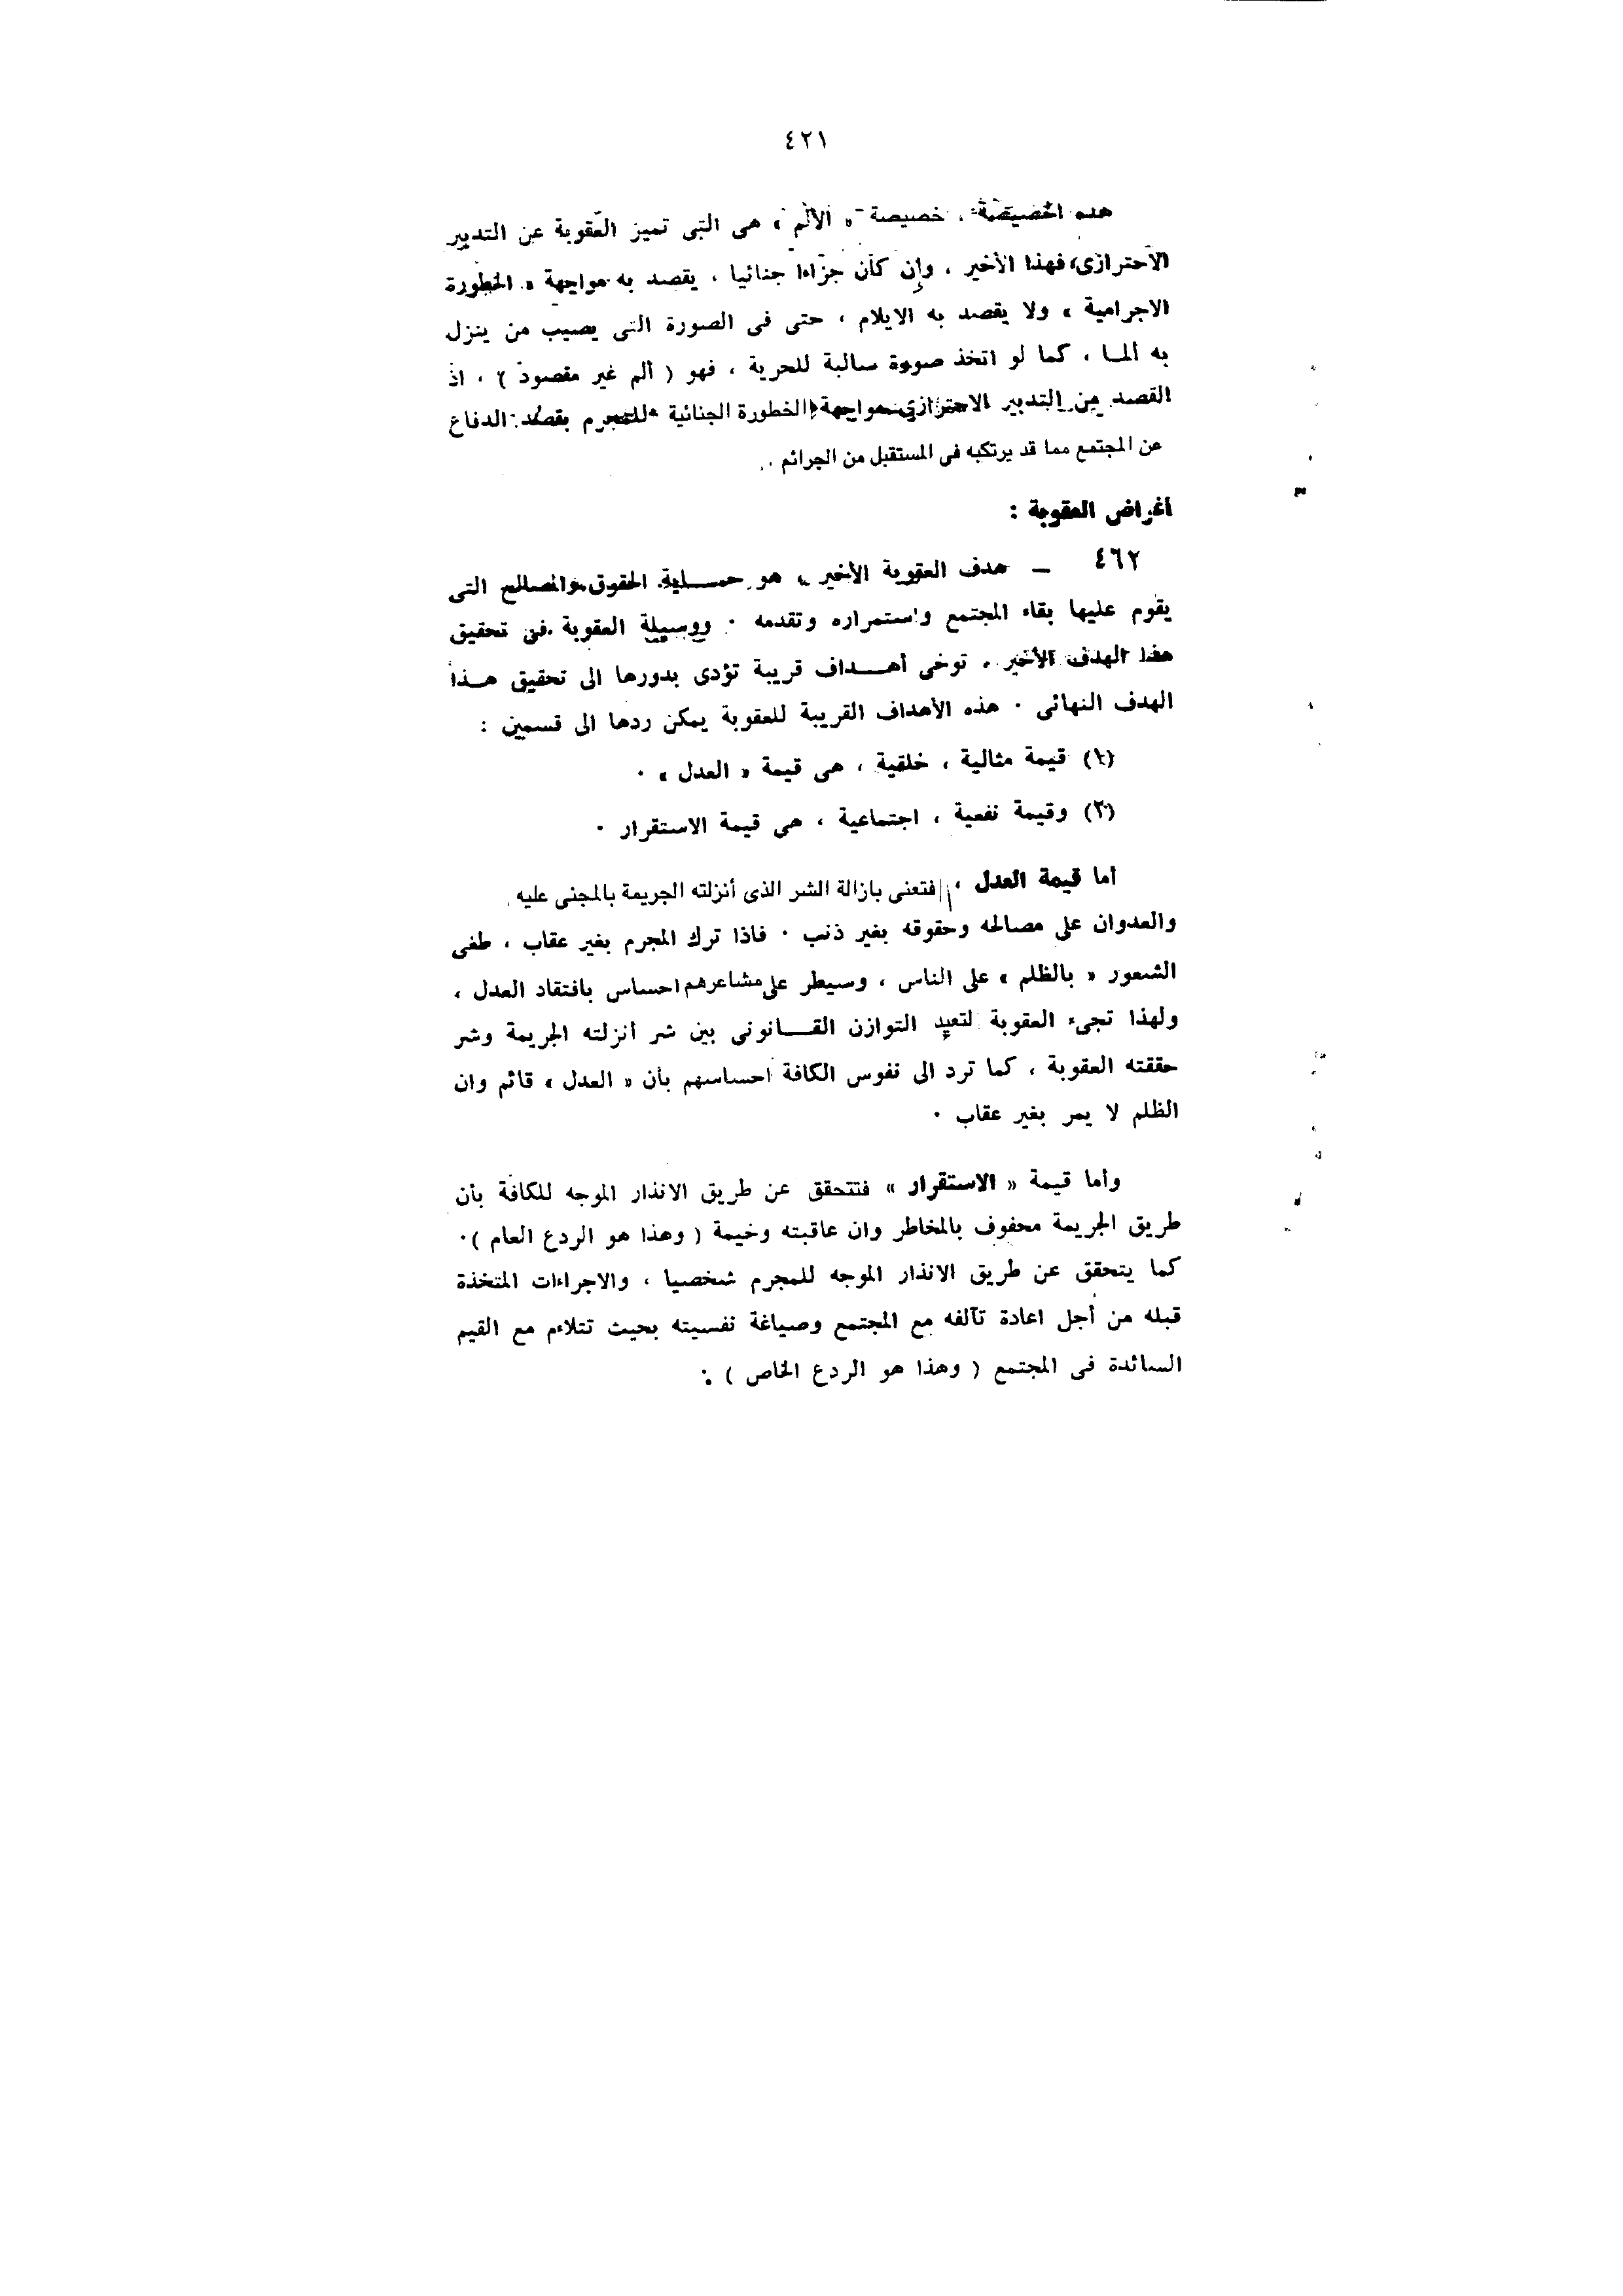 ٤٢١
هذه الخصيصة ، خصيصة « الألم » هى التى تميز العقوبة عن التدبير
الاحترازى، فهذا الأخير ، وإن كان جزاءا جنائيا ، يقصد به مواجهة « الخطورة
الاجرامية » ولا يقصد به الايلام ، حتى فى الصورة التى يصيب من ينزل
به ألمــا ، كما لو اتخذ صورة سالبة للحرية ، فهو ( ألم غير مقصود ) ، اذ
القصد من التدبير الاحترازى مواجهة الخطورة الجنائية للمجرم بقصد الدفاع
عن المجتمع مما قد يرتكبه فى المستقبل من الجرائم .
أغراض العقوبة :
٤٦٢ ــ هدف العقوبة الأخير ، هو حمــاية الحقوق والمصالح التى
يقوم عليها بقاء المجتمع واستمراره وتقدمه . ووسيلة العقوبة فى تحقيق
هذا الهدف الأخير ، توخى أهــداف قريبة تؤدى بدورها الى تحقيق هــذا
الهدف النهائى . هذه الأهداف القريبة للعقوبة يمكن ردها الى قسمين :
(١) قيمة مثالية ، خلقية ، هى قيمة « العدل » .
(٢) وقيمة نفعية ، اجتماعية ، هى قيمة الاستقرار .
أما قيمة العدل ، فتعنى بازالة الشر الذى أنزلته الجريمة بالمجنى عليه
والعدوان على مصالحه وحقوقه بغير ذنب . فاذا ترك المجرم بغير عقاب ، طغى
الشعور « بالظلم » على الناس ، وسيطر على مشاعرهم احساس بافتقاد العدل ،
ولهذا تجىء العقوبة لتعيد التوازن القــانونى بين شر أنزلته الجريمة وشر
حققته العقوبة ، كما ترد الى نفوس الكافة احساسهم بأن « العدل » قائم وان
الظلم لا يمر بغير عقاب .
وأما قيمة « الاستقرار » فتتحقق عن طريق الانذار الموجه للكافة بأن
طريق الجريمة محفوف بالمخاطر وان عاقبته وخيمة ( وهذا هو الردع العام ) .
كما يتحقق عن طريق الانذار الموجه للمجرم شخصيا ، والاجراءات المتخذة
قبله من أجل اعادة تآلفه مع المجتمع وصياغة نفسيته بحيث تتلاءم مع القيم
السائدة فى المجتمع ( وهذا هو الردع الخاص ) .